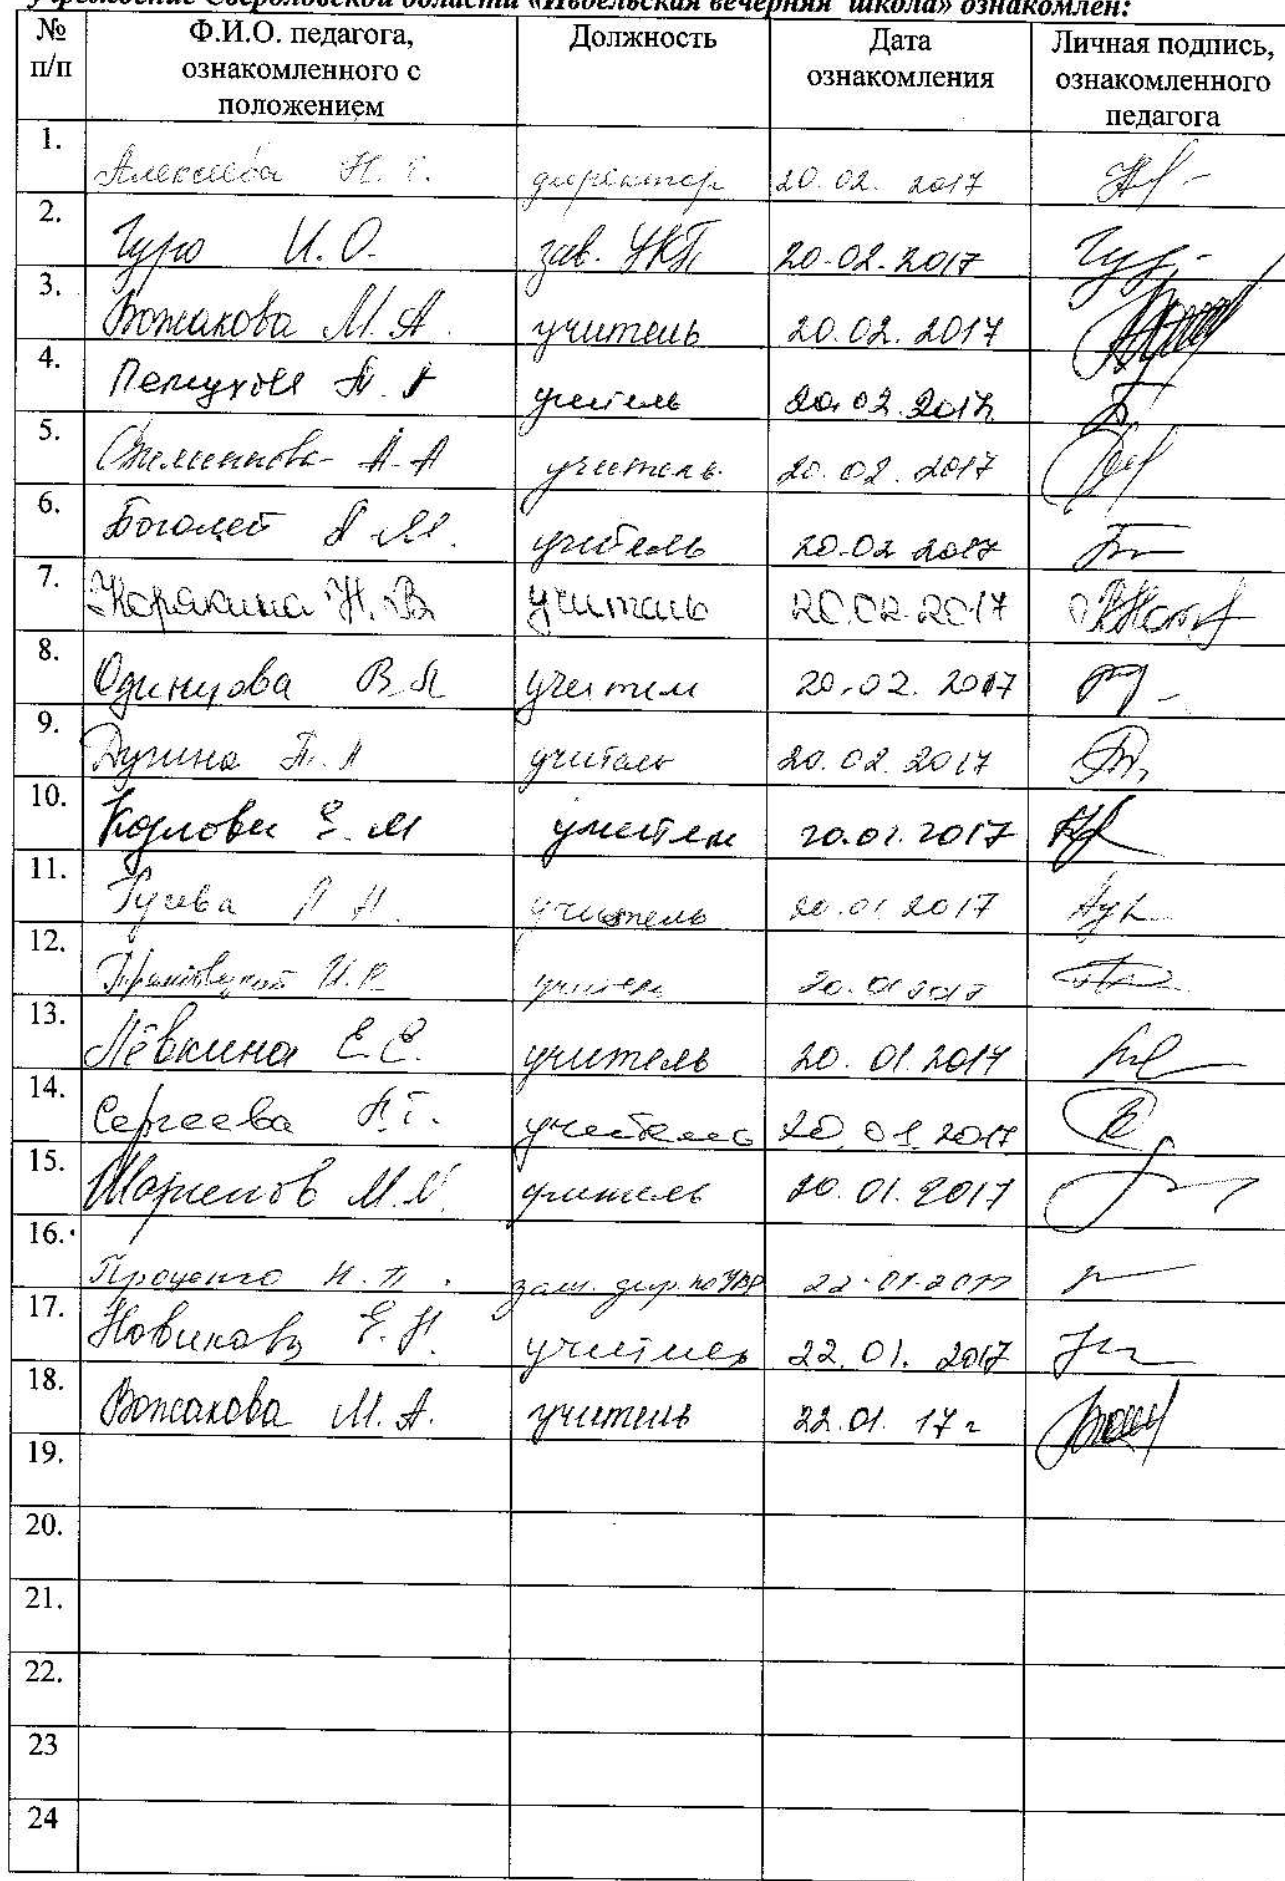 учреждение Свердловской области «Ивдельская вечерняя школа» ознакомлен:
№ п/п Ф.И.О. педагога, ознакомленного с положением Должность Дата ознакомления Личная подпись, ознакомленного педагога
1. Алексеева Н. Г. директор 20.02. 2017
2. Гуро И. О. зав. УКП 20.02.2017
3. Вожакова М. А. учитель 20.02.2017
4. учитель 20.02.2017
5. А. А учитель 20.02.2017
6. Боголей М. учитель 20.02 2017
7. Корякина Н. В учитель 20.02.2017
8. Одинцова В. учитель 20.02.2017
9. учитель 20.02.2017
10. Козлова Е. М учитель 20.01.2017
11. Гусева Л Н. учитель 20.01 2017
12. учитель 20.01 2017
13. Лёвкина Е. Е. учитель 20.01.2017
14. Сергеева Г. учитель 20.01.2017
15. М. учитель 20.01.2017
16. Проценко Н. П. зам. дир. по УВР 22.01.2017
17. Новикова Е. Н. учитель 22.01.2017
18. Вожакова М. А. учитель 22.01. 17 г
19.
20.
21.
22.
23
24